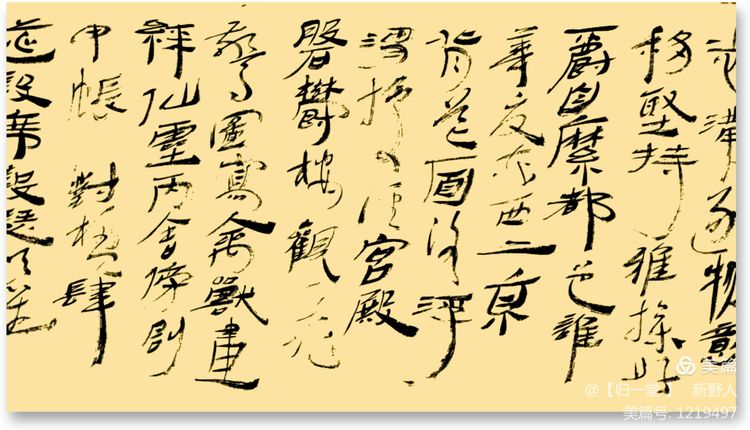 志滿逐物意
移堅持雅操好
爵自縻都邑誰
華夏东西二京
背芒面洛浮
渭據涇宮殿
磐鬱樓觀飛
驚圖寫禽獸畫
綵仙靈丙舍傍啟
甲帳對楹肆
筵設席鼓瑟吹笙
美篇
@【归一堂】 新野人
美篇号: 1219497